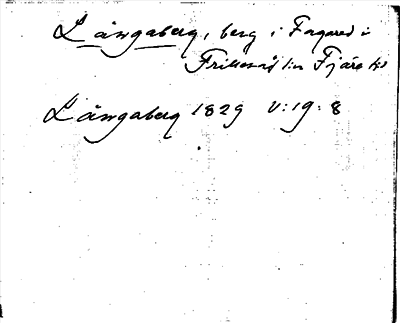 Långaberg, berg i Fagared i
Frillesås sn Fjäre hd
Långaberg 1829 V:19:8